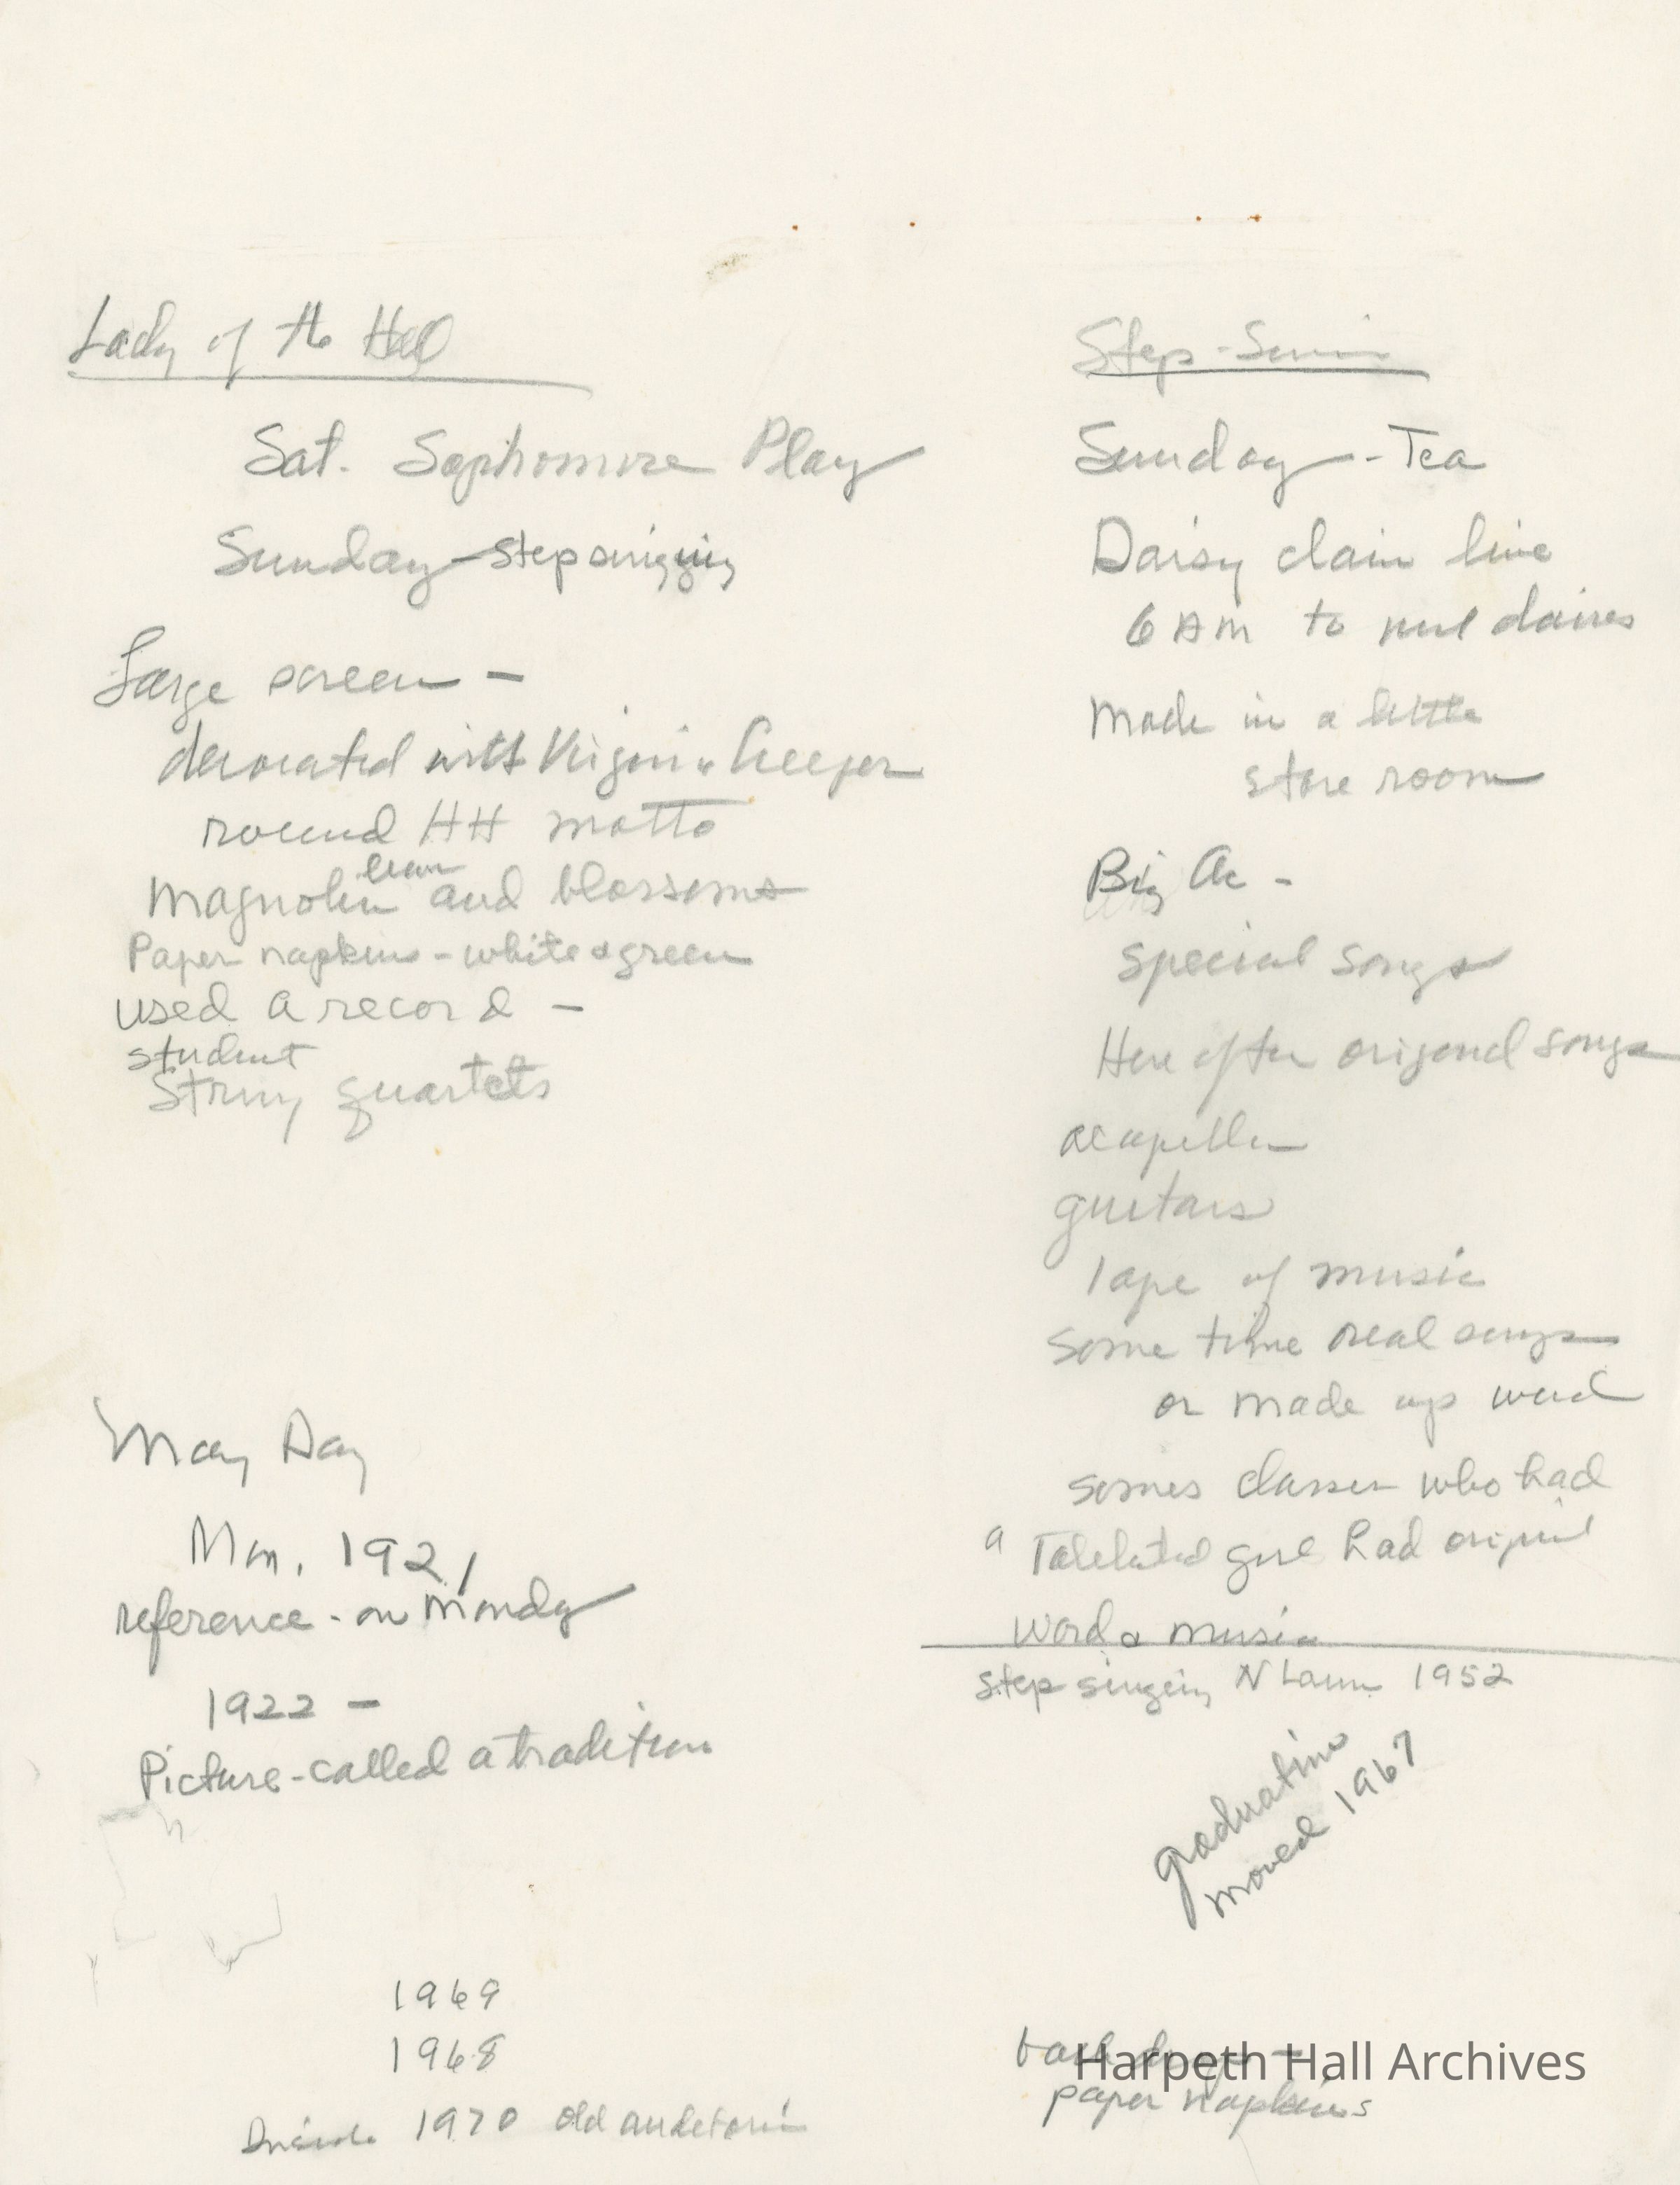 Lady of the Hall
Sat. Sophomore Play
Sunday - Step singing
Large screen -
decorated with Virginia Creeper
round HH motto
leaves
Magnolia and blossoms
Paper napkins - white & green
used a record -
student
String quartets
May Day
Mon, 1921
reference - on Monday
1922 -
Picture - called a tradition
1969
1968
Inside 1970 old auditorium
Step-
Sunday - Tea
Daisy chain line
6 AM to daisies
Made in a little
store room
Big
special songs
Here after original songs
acapella
guitars
Tape of music
Some time real songs
or made up word
somes classes who had
a girl had original
word & music
step singing N Lawn 1952
graduation
moved 1967
back drop -
paper napkins
Harpeth Hall Archives